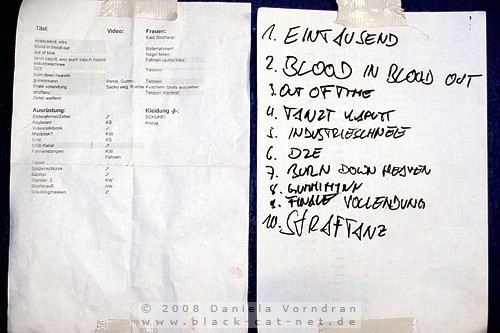 Titel: Video: Frauen:
eintausend, intro
blood in blood out
out of time
tanzt kaputt, was euch kaputt macht
industrieschnee
DZE
burn down heaven
gummimann
finale vollendung
straftanz
Zettel werfen!
Tanzen!
Tanzen! Konfetti!
Ausrüstung:
Keyboard KS
Videonotebook
Macbook? KW
KS
KW
Fahnen
Kleidung
SCHUHE!
Anzug
Alle
Wrestlingmasken
1. EINTAUSEND
2. BLOOD IN BLOOD OUT
3. OUT OF TIME
4. TANZT KAPUTT
5. INDUSTRIESCHNEE
6. DZE
7. BURN DOWN HEAVEN
8. GUMMIMANN
9. FINALE VOLLENDUNG
10. STRAFTANZ
© 2008 Daniela Vorndran
www.black-cat-net.de